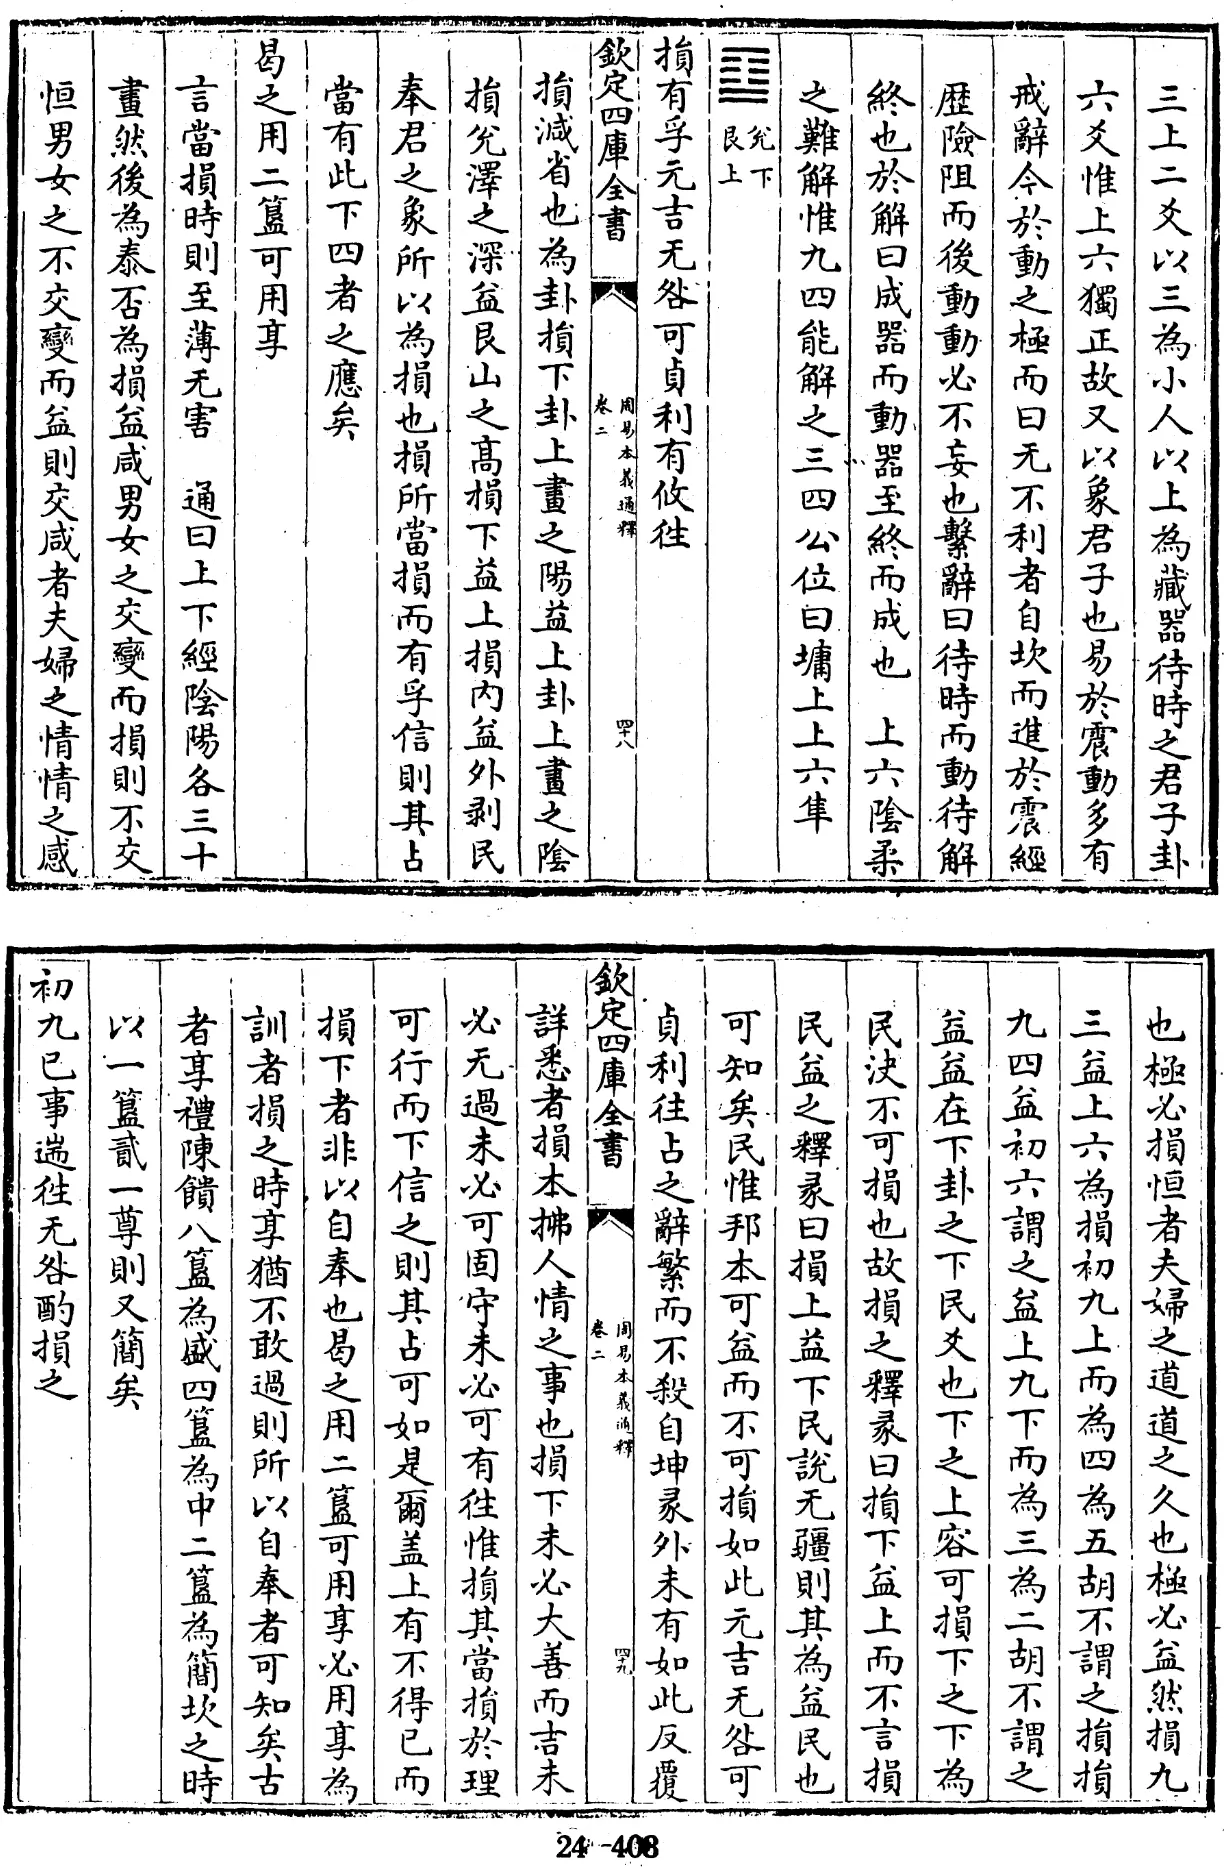 三上二爻以三為小人以上為藏器待時之君子卦
六爻惟上六獨正故又以象君子也易於震動多有
戒辭今於動之極而曰无不利者自坎而進於震經
歴險阻而後動動必不妄也繫辭曰待時而動待解
終也於解曰成器而動器至終而成也　上六陰柔
之難解惟九四能解之三四公位曰墉上上六隼
䷨
兌下
艮上
損有孚元吉无咎可貞利有攸往
欽定四庫全書
周易本義通釋
卷二
四十八
損減省也為卦損下卦上畫之陽益上卦上畫之陰
損兌澤之深益艮山之髙損下益上損内益外剥民
奉君之象所以為損也損所當損而有孚信則其占
當有此下四者之應矣
曷之用二簋可用享
言當損時則至薄无害　通曰上下經陰陽各三十
畫然後為泰否為損益咸男女之交變而損則不交
恒男女之不交變而益則交咸者夫婦之情情之感
也極必損恒者夫婦之道道之久也極必益然損九
三益上六為損初九上而為四為五胡不謂之損損
九四益初六謂之益上九下而為三為二胡不謂之
益益在下卦之下民爻也下之上容可損下之下為
民決不可損也故損之釋彖曰損下益上而不言損
民益之釋彖曰損上益下民說无疆則其為益民也
可知矣民惟邦本可益而不可損如此元吉无咎可
貞利往占之辭繁而不殺自坤彖外未有如此反覆
欽定四庫全書
周易本義通釋
卷二
四十九
詳悉者損本拂人情之事也損下未必大善而吉未
必无過未必可固守未必可有往惟損其當損於理
可行而下信之則其占可如是爾盖上有不得已而
損下者非以自奉也曷之用二簋可用享必用享為
訓者損之時享猶不敢過則所以自奉者可知矣古
者享禮陳饋八簋為盛四簋為中二簋為簡坎之時
以一簋貳一尊則又簡矣
初九已事遄往无咎酌損之
24-408